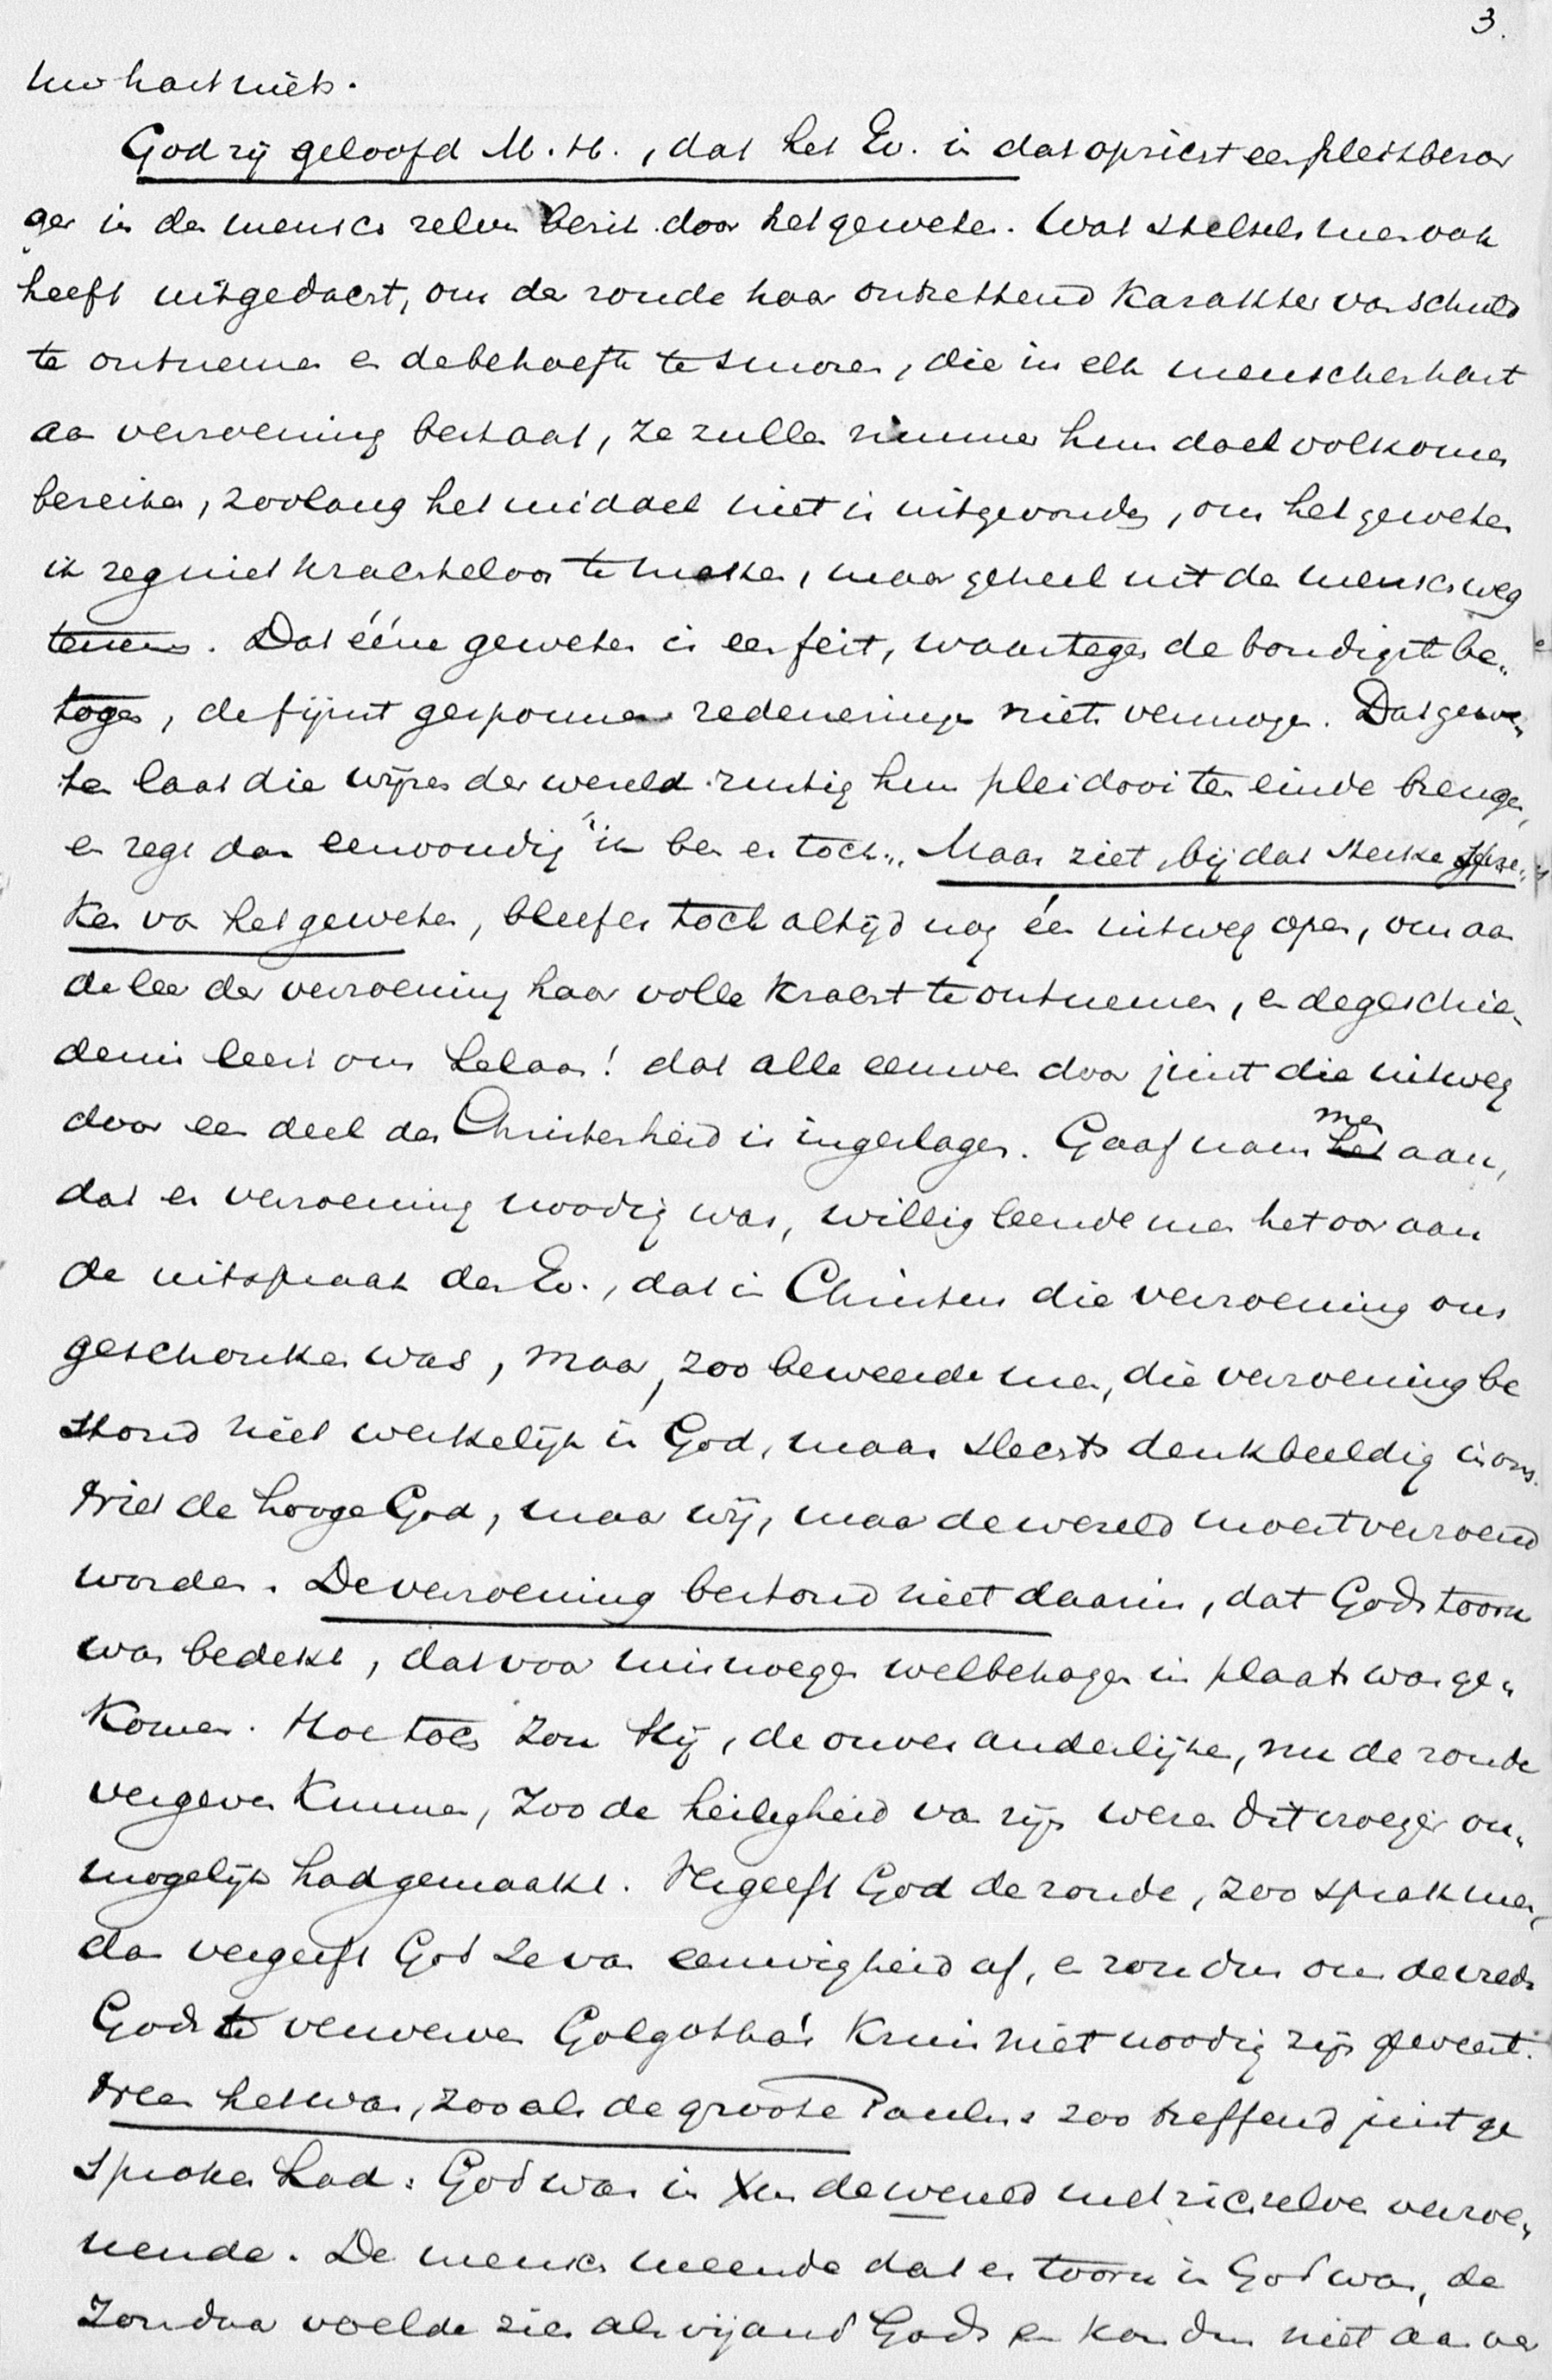 3.
uw hart niets.
God zij geloofd M. H., dat het Ev. in dat opzicht een pleitbezor
ger in den mensch zelven bezit door het geweten. Wat stelsels men ook
heeft uitgedacht, om der zonde haar ontzettend karakter van schuld
te ontnemen en de behoefte te smoren, die in elk menschenhart
aan verzoening bestaat, ze zullen nimmer hun doel volkomen
bereiken, zoolang het middel niet is uitgevonden, om het geweten
ik zeg niet krachteloos te maken, maar geheel uit den mensch weg
te nemen. Dat ééne geweten is een feit, waartegen de bondigste be„
toogen, de fijnst gesponnen redeneringen niets vermogen. Dat gewe„
ten laat die wijzen der wereld rustig hun pleidooi ten einde brengen,
en zegt dan eenvoudig "ik ben er toch„. Maar ziet, bij dat sterke spre„
ken van het geweten, bleef er toch altijd nog één uitweg open, om aan
de leer der verzoening haar volle kracht te ontnemen, en de geschie„
denis leert ons helaas! dat alle eeuwen door juist die uitweg
door een deel der Christenheid is ingeslagen. Gaaf nam men aan,
dat er verzoening noodig was, willig leende men het oor aan
de uitspraak des Ev., dat in Christus die verzoening ons
geschonken was, maar, zoo beweerde men, die verzoening be
stond niet werkelijk in God, maar slechts denkbeeldig in ons.
Niet de hooge God, maar wij, maar de wereld moest verzoend
worden. De verzoening bestond niet daarin, dat Gods toorn
was bedekt, dat voor misnoegen welbehagen in plaats was ge„
komen. Hoe toch zou Hij, de onveranderlijke, nu de zonde
vergeven kunnen, zoo de heiligheid van zijn wezen dit vroeger on„
mogelijk had gemaakt. Vergeeft God de zonde, zoo sprak men,
dan vergeeft God ze van eeuwigheid af, en zou dus om de vrede
Gods te verwerven Golgotha's kruis niet noodig zijn geweest.
Neen het was, zooals de groote Paulus zoo treffend juist ge
sproken had: God was in Xus de wereld met zichzelven verzoe„
nende. De mensch meende dat er toorn in God was, de
zondaar voelde zich als vijand Gods en kon dus niet aan ver